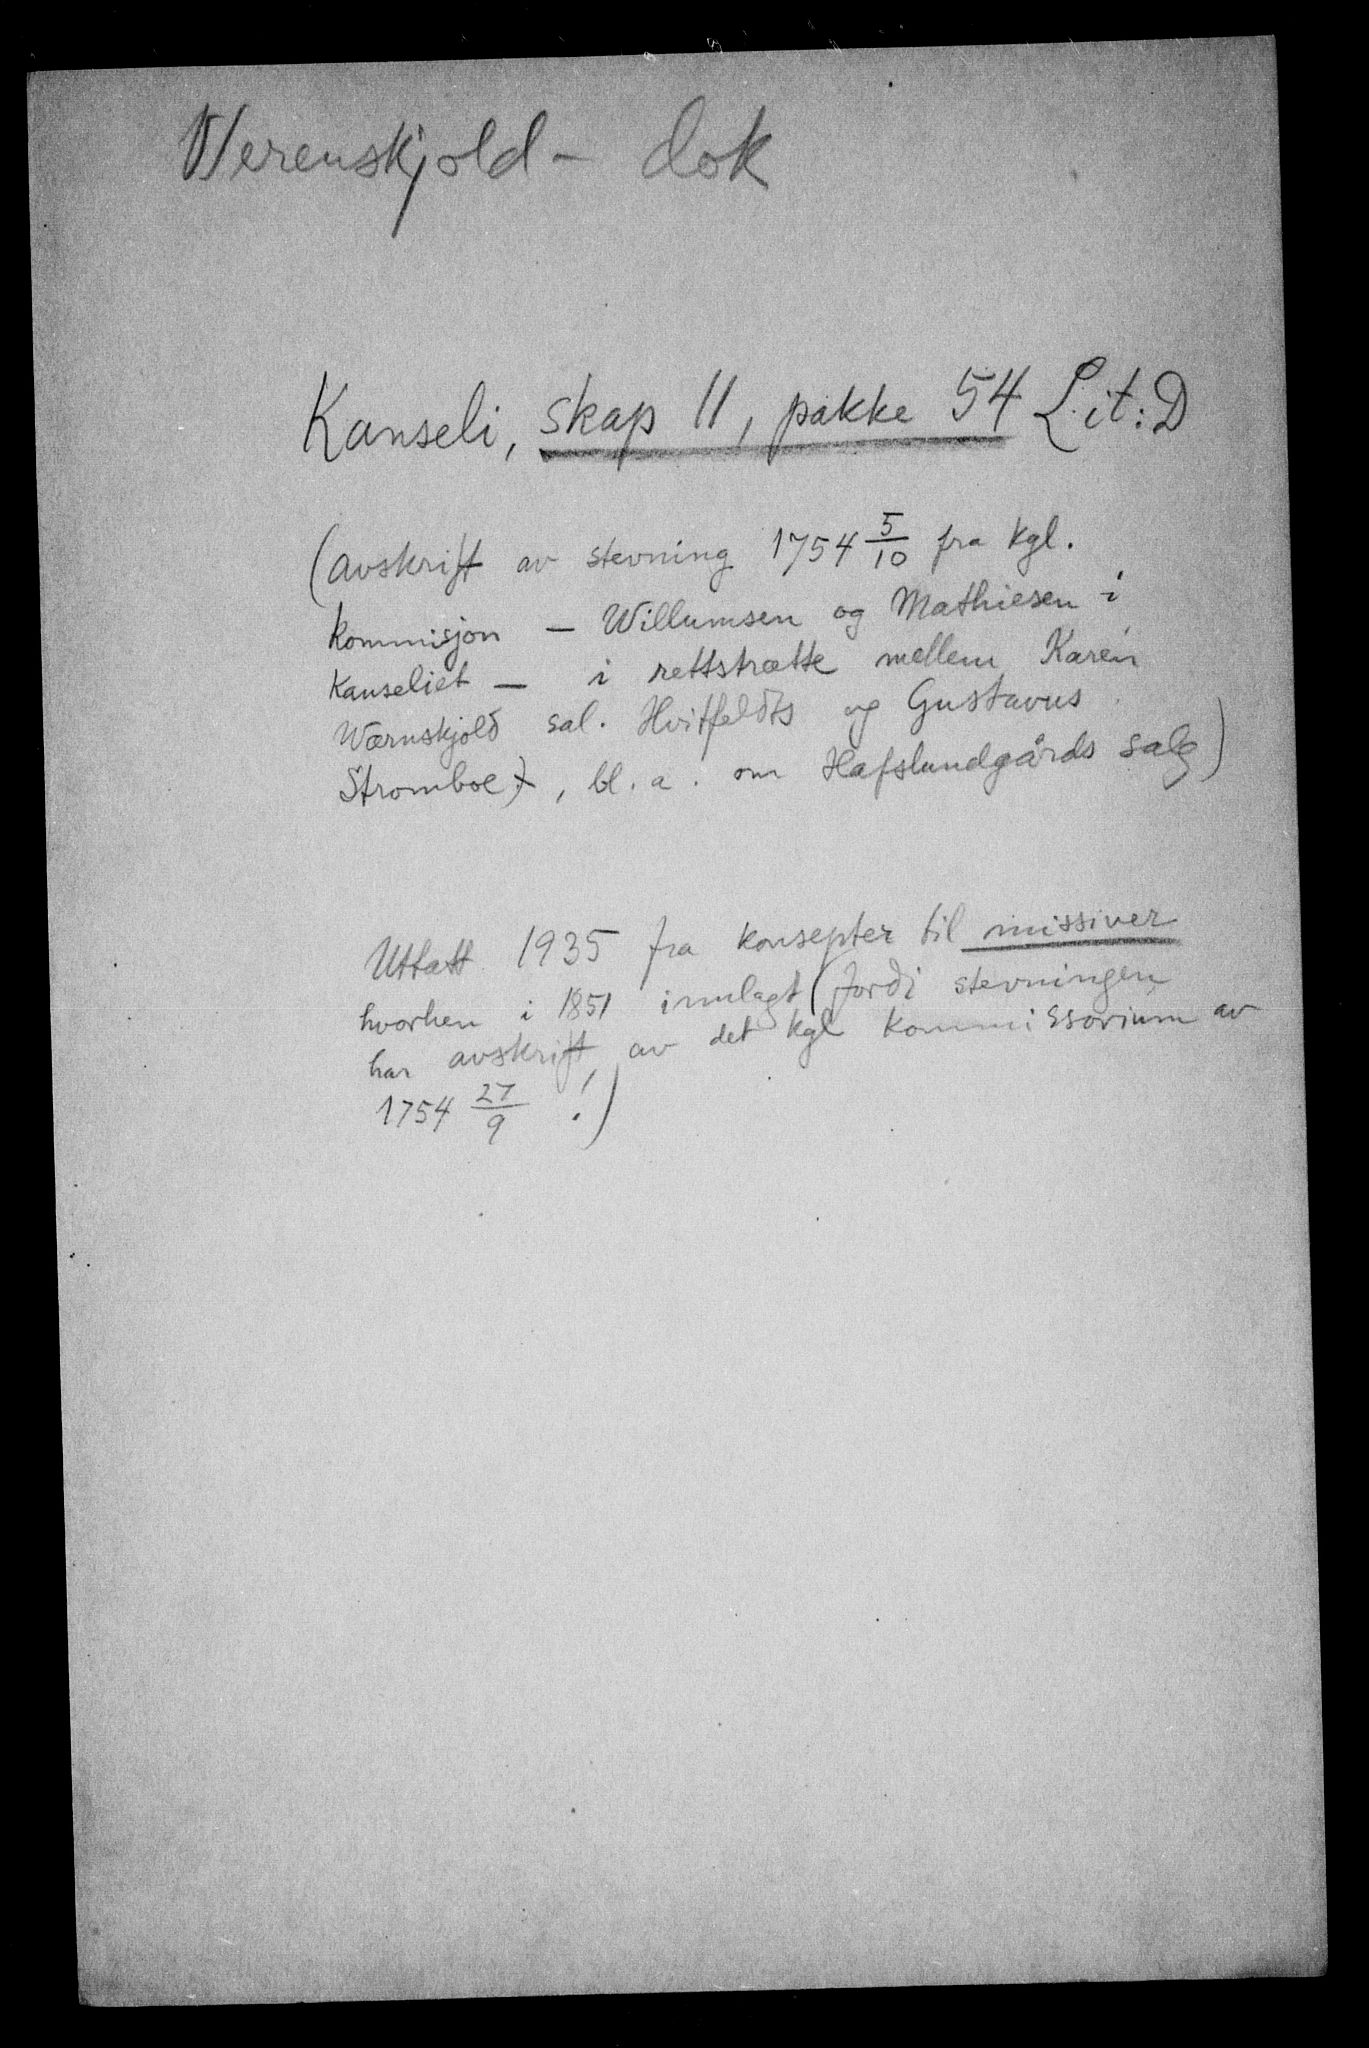 Werenskjold - dok
Kanseli, skap 11, pakke 54 Lit: D
(avskrift av stevning 1754 5/10 fra kgl.
kommisjon — Willumsen og Mathiesen i
kanseliet — i rettstrætte mellem Karen
Wærnskjold sal. Hvitfeldts og Gustavus
Stromboe), bl. a. om Hafslundgårds salg)
Uttatt 1935 fra konsepter til missiver
hvorhen i 1851 innlagt (fordi stevningen
har avskrift av det kgl kommissorium av
1754 27/9 !)